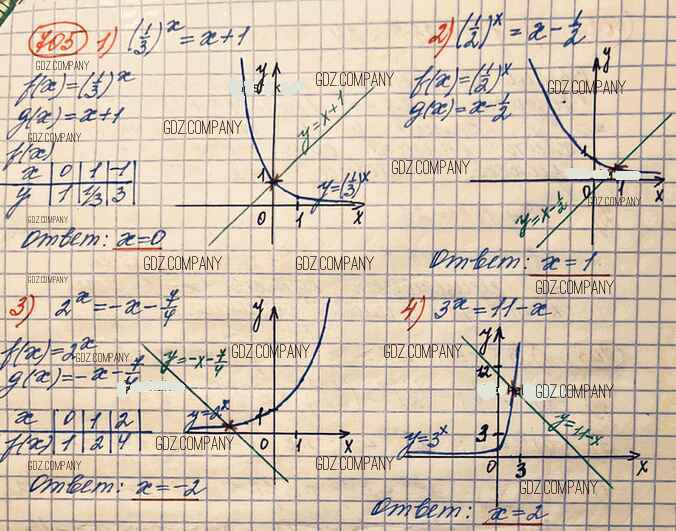 705 1) (1/3)^x = x+1
GDZ.COMPANY
f(x)=(1/3)^x
g(x)=x+1
GDZ.COMPANY
f(x)
x | 0 | 1 | -1
y | 1 | 1/3 | 3
GDZ.COMPANY
Ответ: x=0
y
GDZ.COMPANY
GDZ.COMPANY
y=x+1
1
y=(1/3)^x
0 1 x
GDZ.COMPANY
GDZ.COMPANY
2) (1/2)^x = x - 1/2
f(x)=(1/2)^x
g(x)=x-1/2
y
GDZ.COMPANY
GDZ.COMPANY
1
0 1 x
GDZ.COMPANY
y=x-1/2
Ответ: x=1
GDZ.COMPANY
GDZ.COMPANY
3) 2^x = -x - 7/4
f(x)=2^x
GDZ.COMPANY
g(x)=-x-7/4
x | 0 | 1 | 2
f(x) | 1 | 2 | 4
GDZ.COMPANY
Ответ: x=-2
y
y=-x-7/4
GDZ.COMPANY
y=2^x
1
GDZ.COMPANY
0 1 x
GDZ.COMPANY
4) 3^x = 11-x
y
GDZ.COMPANY
12
GDZ.COMPANY
y=11-x
y=3^x
3
GDZ.COMPANY
0 3 x
GDZ.COMPANY
Ответ: x=2